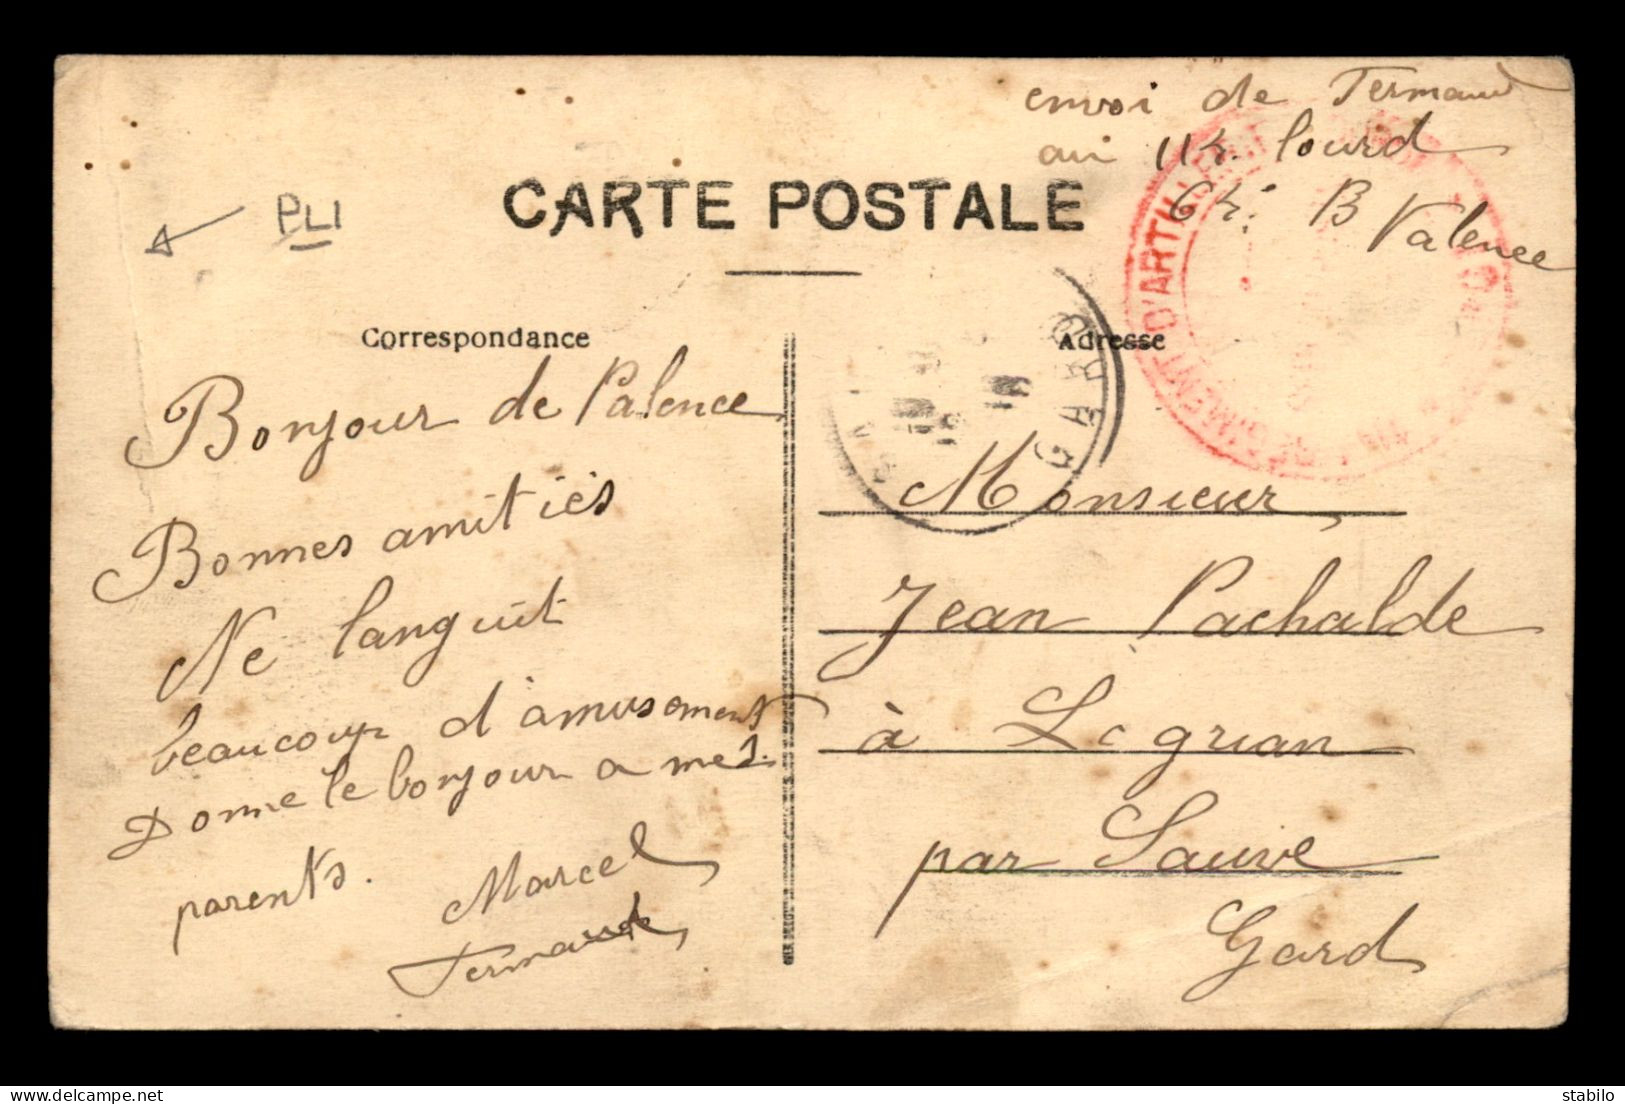 envoi de Fernand
au 11è. lourd
6è. B Valence
CARTE POSTALE
PLI
Correspondance
Adresse
RÉGIMENT D'ARTILLERIE
GARD
Bonjour de Valence
Bonnes amitiés
Ne languit
beaucoup d'amusement
Donne le bonjour a mes
parents.
Marcel
Monsieur
Jean Pachalde
à Logrian
par Sauve
Gard
delcampe.net
stabilo